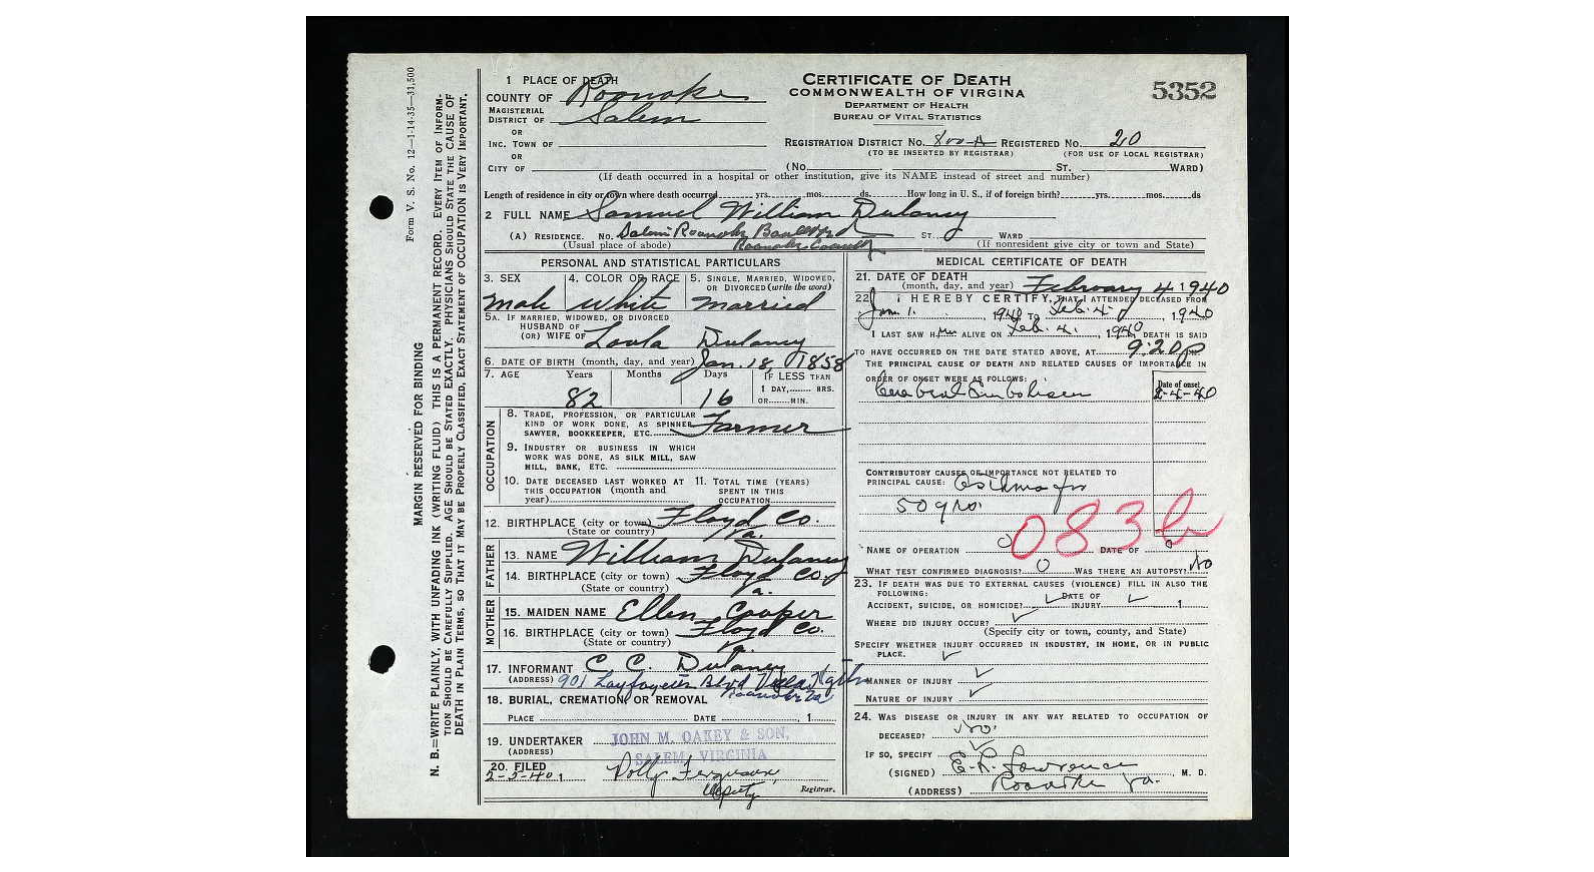 Form V. S. No. 12—1-14-35—31,500
MARGIN RESERVED FOR BINDING
N. B.—WRITE PLAINLY, WITH UNFADING INK (WRITING FLUID) THIS IS A PERMANENT RECORD. EVERY ITEM OF INFORM-
TION SHOULD BE CAREFULLY SUPPLIED. AGE SHOULD BE STATED EXACTLY. PHYSICIANS SHOULD STATE THE CAUSE OF
DEATH IN PLAIN TERMS, SO THAT IT MAY BE PROPERLY CLASSIFIED. EXACT STATEMENT OF OCCUPATION IS VERY IMPORTANT.
1 PLACE OF DEATH
COUNTY OF Roanoke
MAGISTERIAL
DISTRICT OF Salem
OR
INC. TOWN OF
OR
CITY OF
CERTIFICATE OF DEATH
COMMONWEALTH OF VIRGINIA
DEPARTMENT OF HEALTH
BUREAU OF VITAL STATISTICS
5352
REGISTRATION DISTRICT NO. 800-A REGISTERED NO. 20
(TO BE INSERTED BY REGISTRAR) (FOR USE OF LOCAL REGISTRAR)
(No. ST. WARD)
(If death occurred in a hospital or other institution, give its NAME instead of street and number)
Length of residence in city or town where death occurred yrs. mos. ds. How long in U. S., if of foreign birth? yrs. mos. ds
2 FULL NAME Samuel William Dulaney
(A) RESIDENCE. No. Salem Roanoke ST. WARD
(Usual place of abode) Roanoke County (If nonresident give city or town and State)
PERSONAL AND STATISTICAL PARTICULARS
3. SEX 4. COLOR OR RACE 5. SINGLE, MARRIED, WIDOWED,
OR DIVORCED (write the word)
Male White Married
5A. IF MARRIED, WIDOWED, OR DIVORCED
HUSBAND OF
(OR) WIFE OF Loula Dulaney
6. DATE OF BIRTH (month, day, and year) Jan. 18, 1858
7. AGE Years Months Days IF LESS THAN
1 DAY, HRS.
82 16 OR MIN.
OCCUPATION
8. TRADE, PROFESSION, OR PARTICULAR
KIND OF WORK DONE, AS SPINNER,
SAWYER, BOOKKEEPER, ETC. Farmer
9. INDUSTRY OR BUSINESS IN WHICH
WORK WAS DONE, AS SILK MILL, SAW
MILL, BANK, ETC.
10. DATE DECEASED LAST WORKED AT 11. TOTAL TIME (YEARS)
THIS OCCUPATION (month and SPENT IN THIS
year) OCCUPATION
12. BIRTHPLACE (city or town) Floyd Co.
(State or country) Va.
FATHER
13. NAME William Dulaney
14. BIRTHPLACE (city or town) Floyd Co.
(State or country) Va.
MOTHER
15. MAIDEN NAME Ellen Cooper
16. BIRTHPLACE (city or town) Floyd Co.
(State or country) Va.
17. INFORMANT C. C. Dulaney
(ADDRESS) 901 Layfayette Blvd
Roanoke Va
18. BURIAL, CREMATION, OR REMOVAL
PLACE DATE , 1
19. UNDERTAKER JOHN M. OAKEY & SON,
(ADDRESS) SALEM, VIRGINIA
20. FILED
2-5-40, 1 Polly Ferguson,
Deputy Registrar.
MEDICAL CERTIFICATE OF DEATH
21. DATE OF DEATH
(month, day, and year) February 4 1940
22. I HEREBY CERTIFY, THAT I ATTENDED DECEASED FROM
Jan 1. , 1940 TO Feb. 4 , 1940
I LAST SAW HIM ALIVE ON Feb. 4. , 1940 DEATH IS SAID
TO HAVE OCCURRED ON THE DATE STATED ABOVE, AT 9:20 p M.
THE PRINCIPAL CAUSE OF DEATH AND RELATED CAUSES OF IMPORTANCE IN
ORDER OF ONSET WERE AS FOLLOWS: Date of onset
Cerebral Embolism 2-4-40
CONTRIBUTORY CAUSES OF IMPORTANCE NOT RELATED TO
PRINCIPAL CAUSE: Asthma for
50 yrs.
083b
NAME OF OPERATION 0 DATE OF 0
WHAT TEST CONFIRMED DIAGNOSIS? 0 WAS THERE AN AUTOPSY? No
23. IF DEATH WAS DUE TO EXTERNAL CAUSES (VIOLENCE) FILL IN ALSO THE
FOLLOWING:
ACCIDENT, SUICIDE, OR HOMICIDE? DATE OF INJURY 1
WHERE DID INJURY OCCUR?
(Specify city or town, county, and State)
SPECIFY WHETHER INJURY OCCURRED IN INDUSTRY, IN HOME, OR IN PUBLIC
PLACE.
MANNER OF INJURY
NATURE OF INJURY
24. WAS DISEASE OR INJURY IN ANY WAY RELATED TO OCCUPATION OF
DECEASED? No.
IF SO, SPECIFY
(SIGNED) E. R. Lawrence , M. D.
(ADDRESS) Roanoke Va.